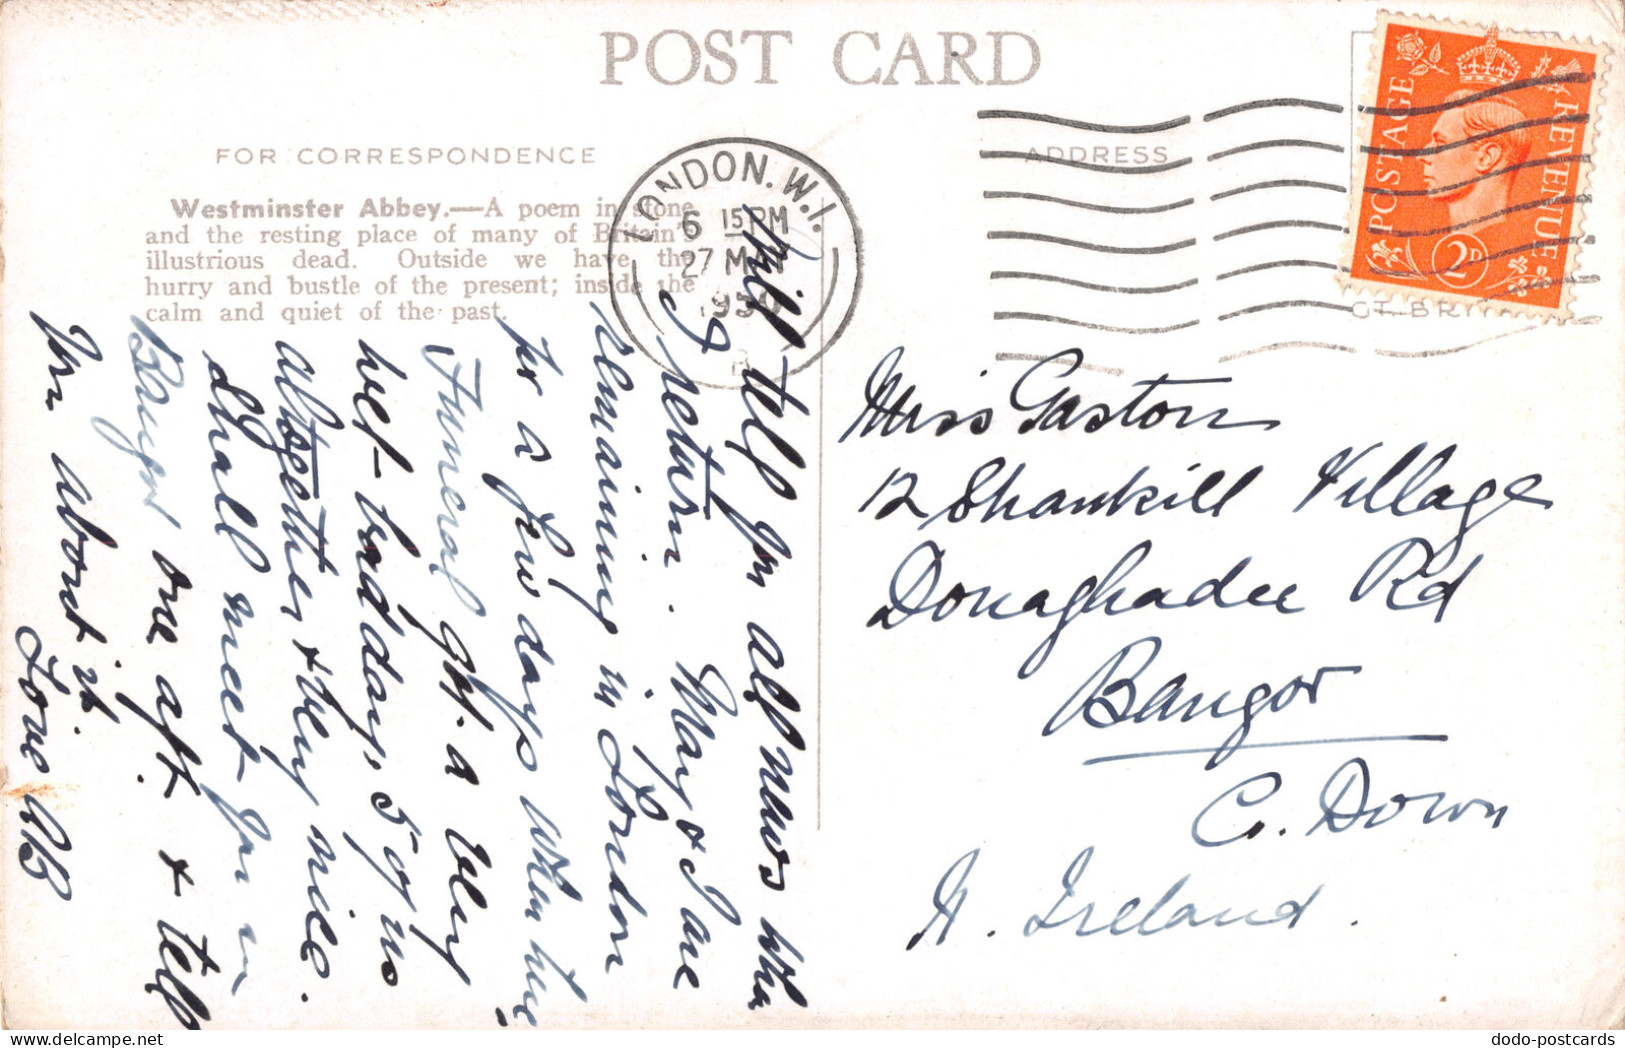 POST CARD
FOR CORRESPONDENCE
ADDRESS
Westminster Abbey.—A poem in stone
and the resting place of many of Britain's
illustrious dead. Outside we have the
hurry and bustle of the present; inside the
calm and quiet of the past.
LONDON. W.1.
6 15 PM
27 MA
1950
POSTAGE REVENUE
2D
GT. BRI
Will tell you all news when
I return. May & I are
remaining in London
for a few days when
Funeral yst. a very
wet bad day, 5 of us
altogether & very nice.
Shall meet you in
Bangor one aft. & tell
you about it.
Love
Miss Gaston
12 Shankill Village
Donaghadee Rd
Bangor
C. Down
N. Ireland.
dodo-postcards